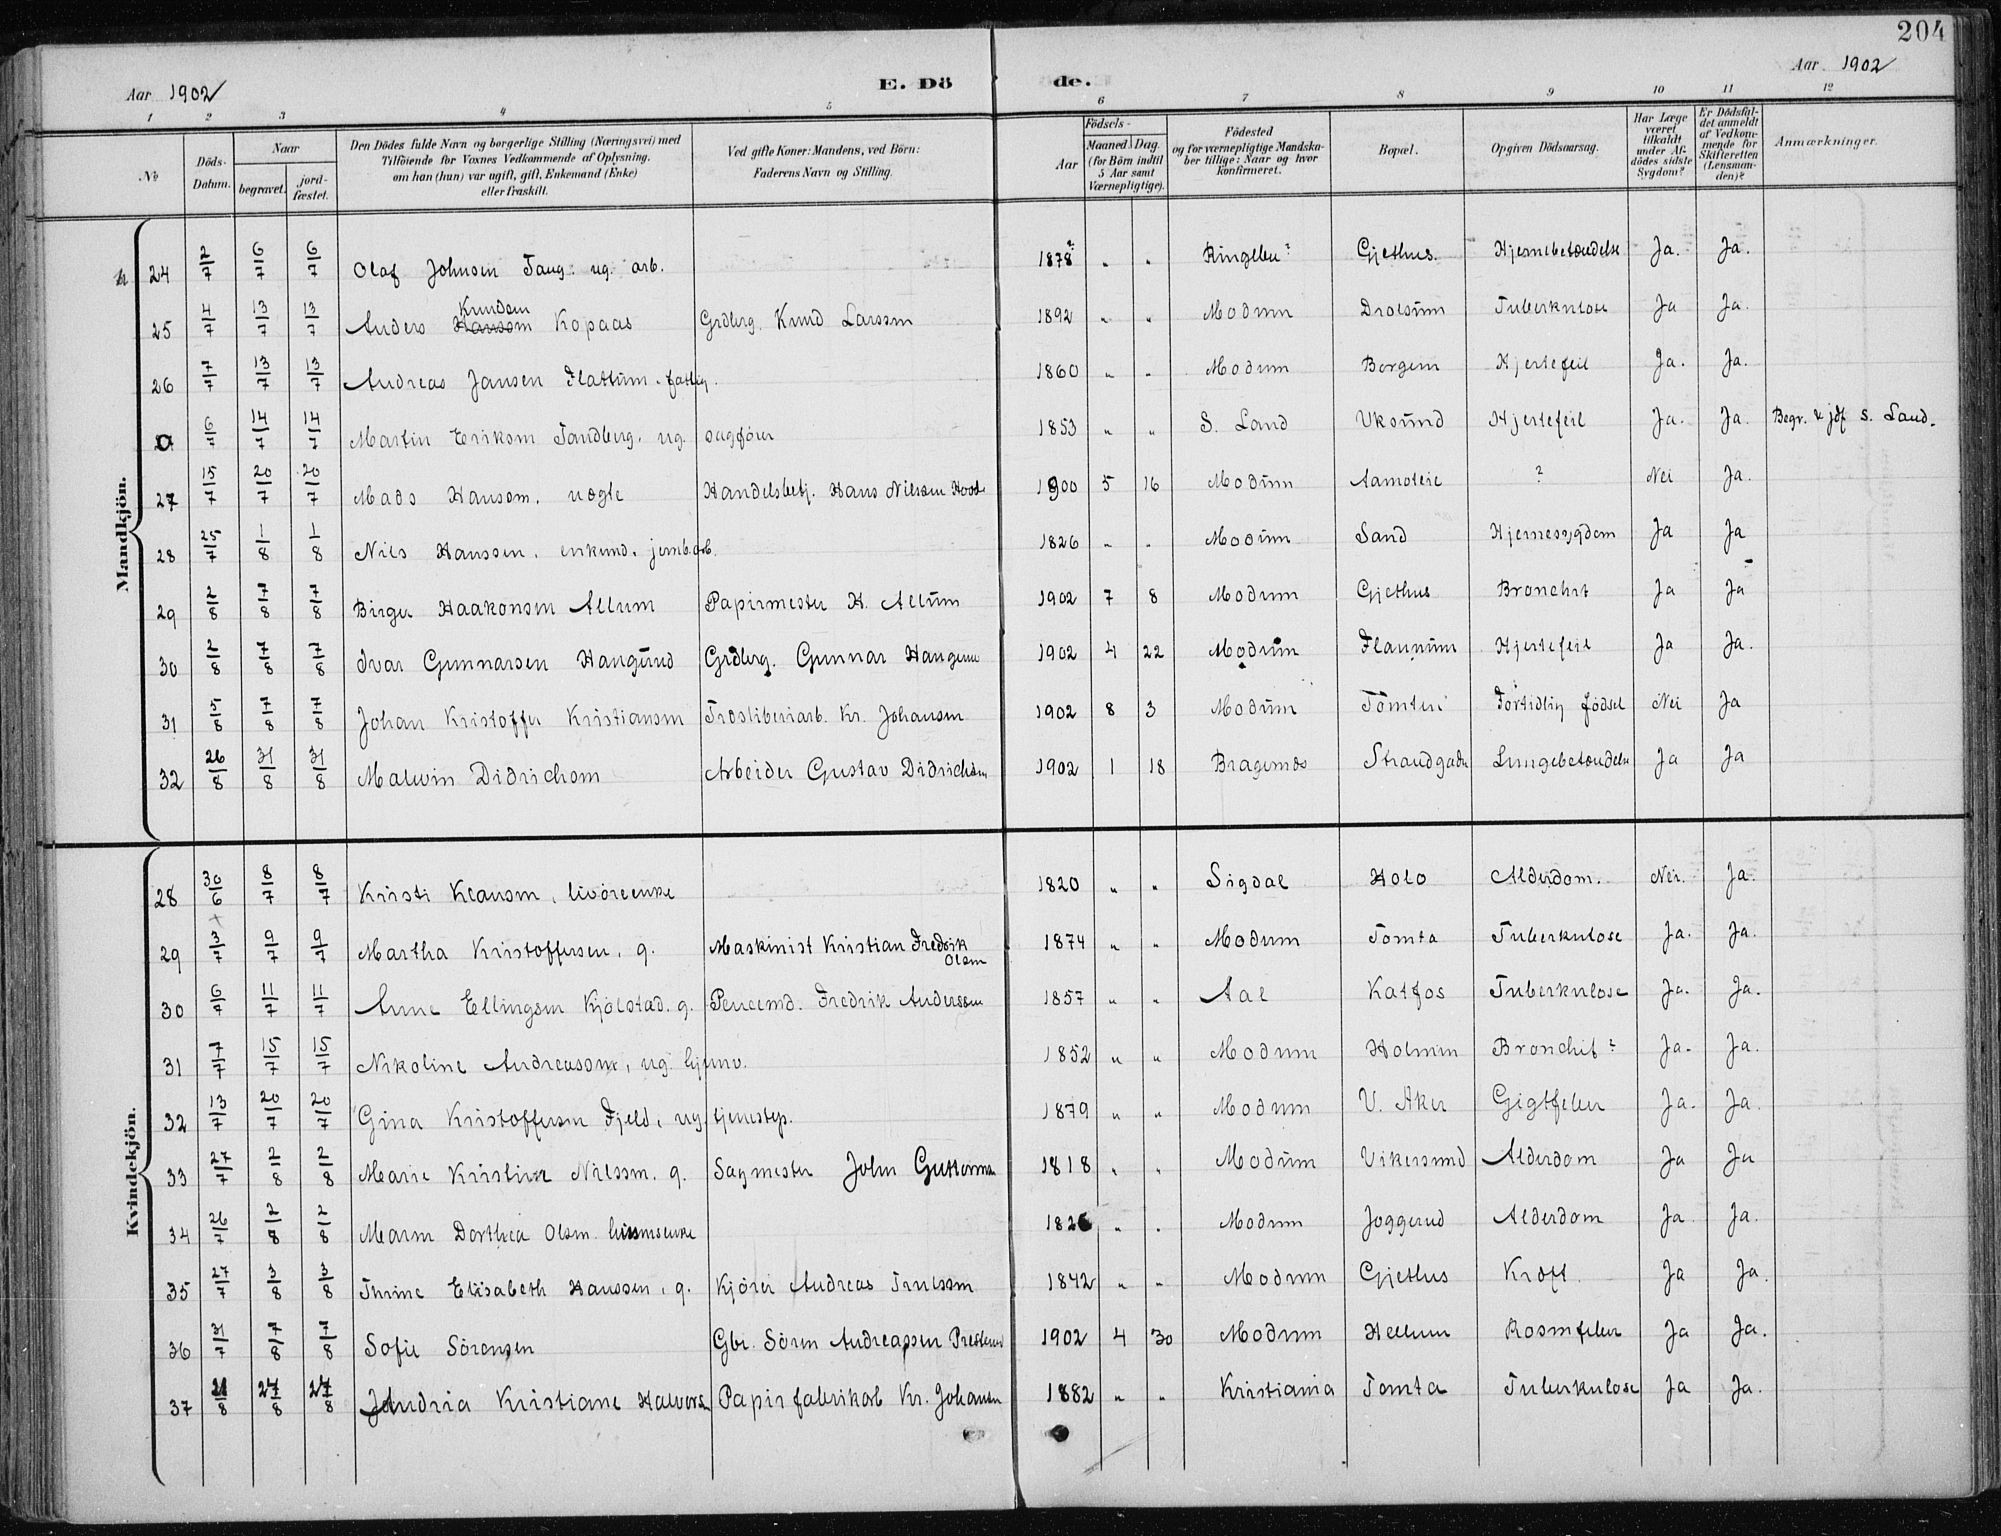 204
Aar 1902 E. Dö de. Aar 1902
1 2 3 4 5 6 7 8 9 10 11 12
№ Döds-Datum. Naar begravet. jord-fæstet. Den Dödes fulde Navn og borgerlige Stilling (Næringsvei) med Tilföiende for Voxnes Vedkommende af Oplysning, om han (hun) var ugift, gift, Enkemand (Enke) eller fraskilt. Ved gifte Koner: Mandens, ved Börn: Faderens Navn og Stilling. Aar Födsels- Maaned Dag. (for Börn indtil 5 Aar samt Værnepligtige). Födested og for værnepligtige Mandska-ber tillige: Naar og hvor konfirmeret. Bopæl. Opgiven Dödsaarsag. Har Læge været tilkaldt under Af-dödes sidste Sygdom? Er Dödsfal-det anmeldt af Vedkom-mende for Skifteretten (Lensman-den)? Anmærkninger.
Mandkjön.
24 2/7 6/7 6/7 Olaf Johnsen Taug. ug. arb. 1878? " " Ringebu? Gjethus. Hjernebetændelse Ja. Ja.
25 4/7 13/7 13/7 Anders Hansen Knudsen Kopaas Grdbrg. Knud Larssen 1892 " " Modum Drolsum Tuberkulose Ja Ja.
26 7/7 13/7 13/7 Andreas Jansen Flattum. fattig. 1860 " " Modum Borgen Hjertefeil Ja. Ja.
6/7 14/7 14/7 Martin Eriksen Sandberg. ug. sagfører 1853 " " S. Land Vksund Hjertefeil Ja. Ja. Begr. & jdf S. Land.
27 15/7 20/7 20/7 Mads Hansen. uægte Handelsbetj. Hans Nilsen 1900 5 16 Modum Aamoteie ? Nei Ja.
28 25/7 1/8 1/8 Nils Hanssen. enkemd. jernb.arb. 1826 " " Modum Sand Hjernesygdom Ja Ja
29 2/8 7/8 7/8 Birger Haakonsen Allum Papirmester H. Allum 1902 7 8 Modum Gjethus Bronchit Ja Ja
30 2/8 7/8 7/8 Ivar Gunnarsen Haugund Grdbrg. Gunnar Haugund 1902 4 22 Modum Flannum Hjertefeil Ja Ja.
31 5/8 7/8 7/8 Johan Kristoffer Kristiansen Træsliberiarb. Kr. Johansen 1902 8 3 Modum Tomten Fortidlig fødsel Nei Ja
32 26/8 31/8 31/8 Malwin Didrichsen Arbeider Gustav Didrichsen 1902 1 18 Bragernæs Strandgaden Lungebetændelse Ja Ja
Kvindekjön.
28 30/6 8/7 8/7 Kristi Klausen, livöreenke 1820 " " Sigdal Holo Alderdom. Nei. Ja.
29 3/7 9/7 9/7 Martha Kristoffersen, g. Maskinist Kristian Fredrik Olsen 1874 " " Modum Tomta Tuberkulose Ja. Ja.
30 6/7 11/7 11/7 Anne Ellingsen Kjölstad. g. Fredrik Anderssen 1857 " " Aal Katfos Tuberkulose Ja. Ja.
31 7/7 15/7 15/7 Nikoline Andreasen, ug. 1852 " " Modum Holmen Bronchit? Ja. Ja.
32 13/7 20/7 20/7 Gina Kristoffersen Fjeld, ug. tjenestep. 1879 " " Modum V. Aker Gigtfeber Ja. Ja.
33 27/7 2/8 2/8 Marie Kristine Nilssen. g. Sagmester John Guttorman 1818 " " Modum Vikersund Alderdom Ja Ja
34 26/7 2/8 2/8 Maren Dorthea Olsen. 1826 " " Modum Joggerud Alderdom Ja Ja.
35 27/7 3/8 3/8 Thrine Elisabeth Hanssen, g. Kjörer Andreas Trulssen 1842 " " Modum Gjethus Kræft. Ja Ja.
36 31/7 7/8 7/8 Sofie Sörensen Gbr. Sören Andreassen Presterud 1902 4 30 Modum Hellum Rosenfeber Ja Ja.
37 21/8 27/8 27/8 Andria Kristiane Halvorsen Papirfabrikarb Kr. Johansen 1882 " " Kristiania Tomta Tuberkulose Ja Ja.